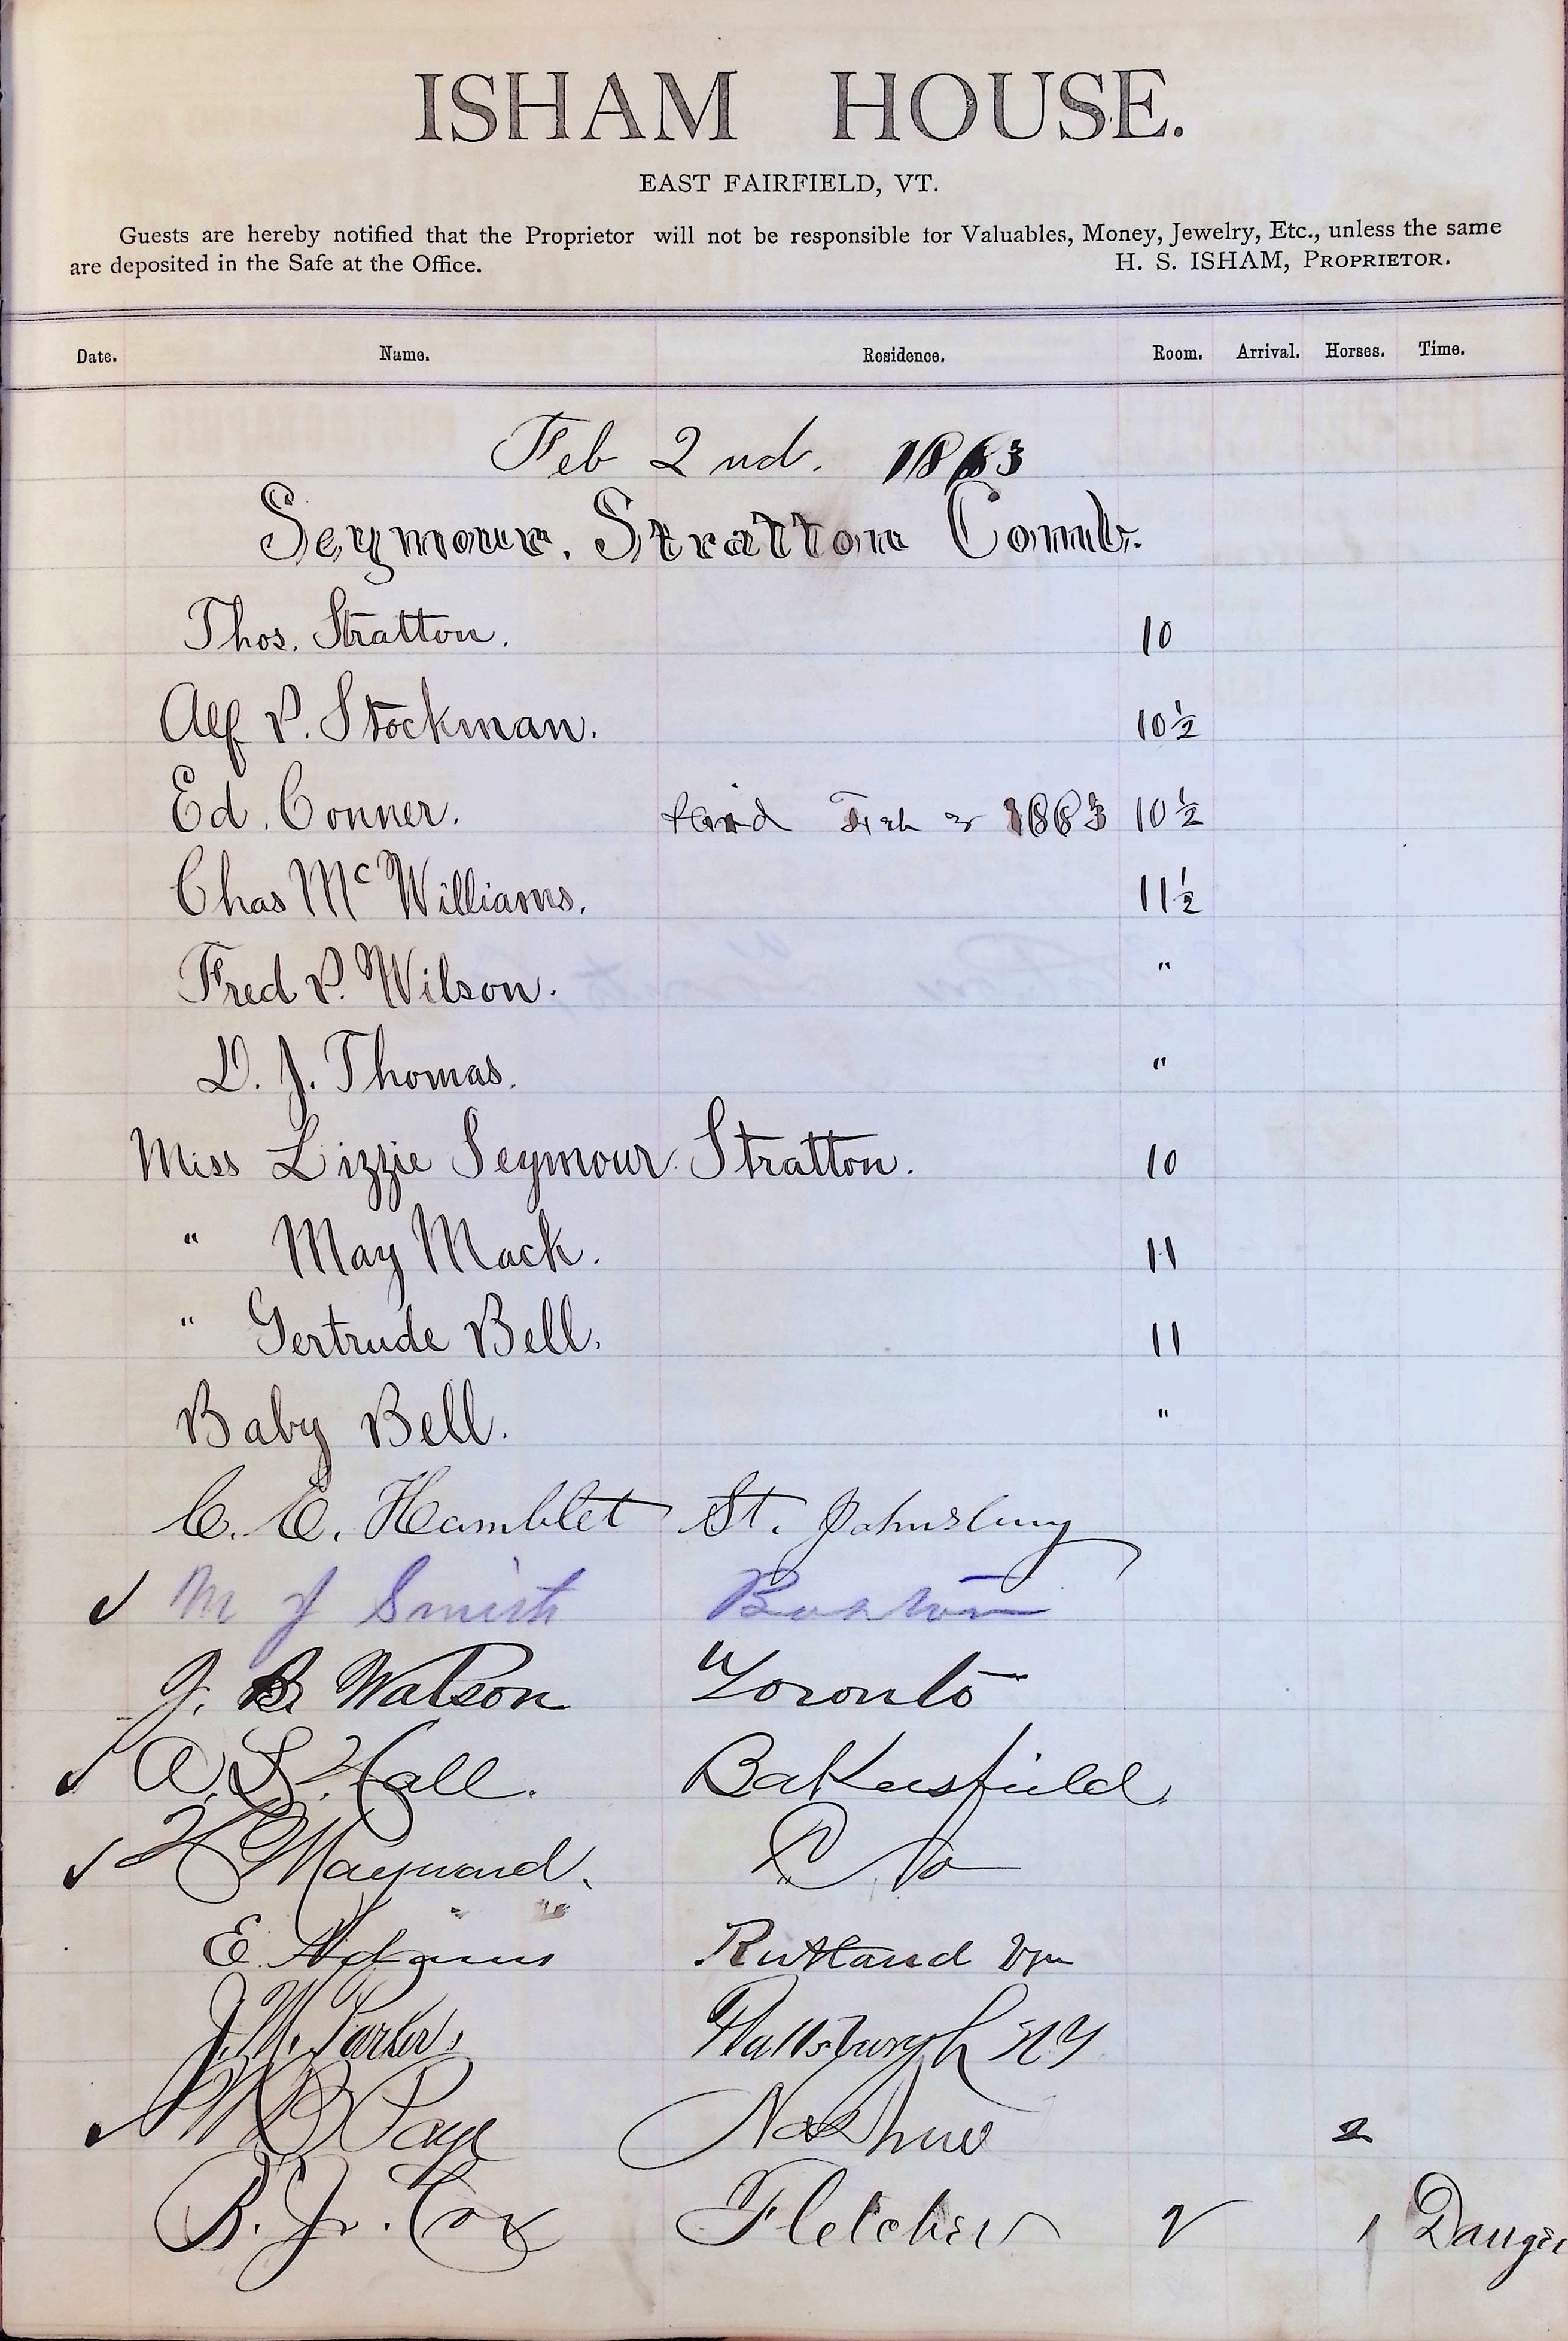 ISHAM HOUSE.
EAST FAIRFIELD, VT.
Guests are hereby notified that the Proprietor will not be responsible for Valuables, Money, Jewelry, Etc., unless the same
are deposited in the Safe at the Office. H. S. ISHAM, PROPRIETOR.
Date. Name. Residence. Room. Arrival. Horses. Time.
Feb 2nd. 1883
Seymour. Stratton Comb.
Thos. Stratton. 10
Alf P. Stockman. 10½
Ed. Conner. 1883 10½
Chas McWilliams. 11½
Fred P. Wilson. "
D. J. Thomas. "
Miss Lizzie Seymour Stratton. 10
" May Mack. 11
" Gertrude Bell. 11
Baby Bell. "
C. C. Hamblet St. Johnsbury
M J Smith Boston
J. B. Watson Toronto
A. S. Hall. Bakersfield
H Maynard.
E Adams Rutland Vm
J. M. Parker. Plattsburgh NY
W B Page Nashua 2
B. Jr. Cox Fletcher 2 1